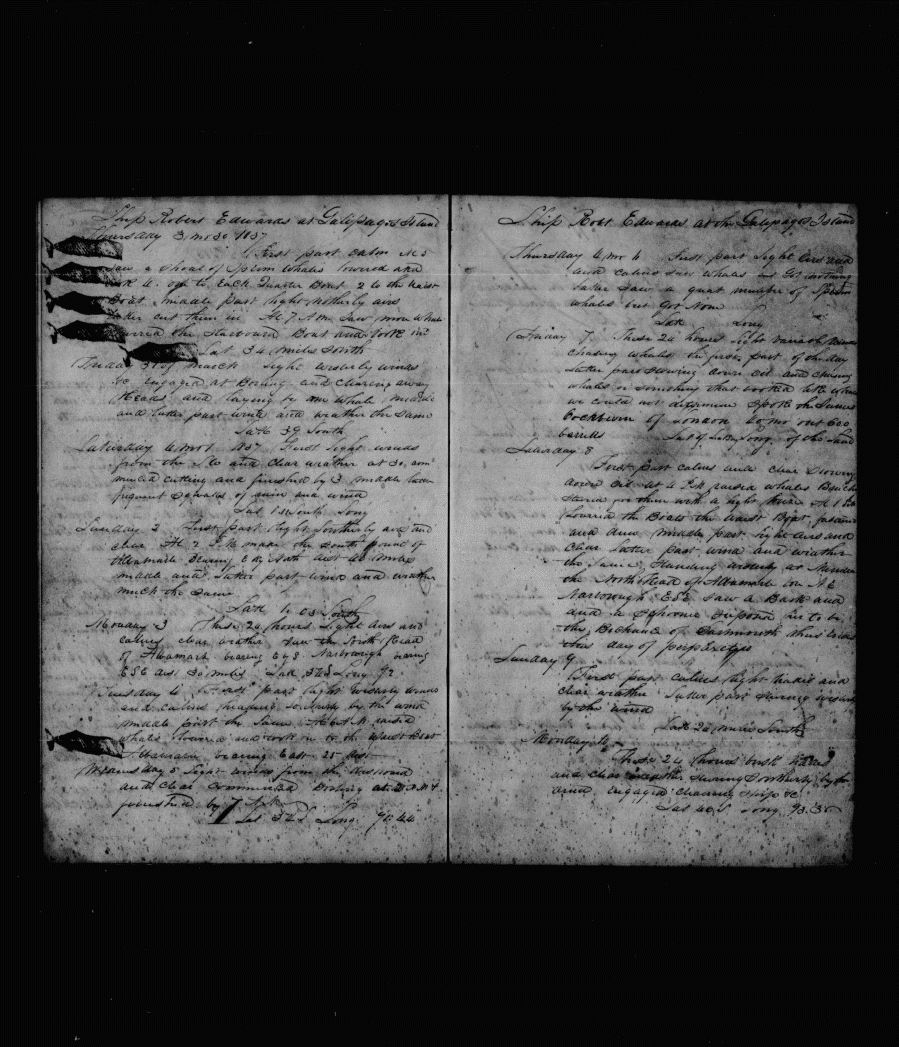 Ship Robert Edwards at Galipagos Island
Thursday 3 mo 30 1837
First part calm At 5
saw a Shoal of Sperm Whales lowered and
took 4. one to Each Quarter Boat 2 to the waist
Boat. middle part light Notherly airs
later cut them in. At 7 A.M. Saw more Whales
lowered the Starboard Boat and took in
Lat 34 miles South
31 of March light westerly winds
engaged at Boiling and clearing away
Heads and laying by one Whale middle
and latter part wind and weather the same
Lat 39 South
Saturday 4 mo 1 1837 First light winds
from the and clear weather at 30,
cutting and finished by 3 middle latter
of rain and wind
Lat 1 South Long
Sunday 2 First part light Southerly airs and
clear At 2 P.M. made the South point of
Albamarle bearing E by North dist 40 miles
middle and latter part wind and weather
much the same
Lat 1.03 South
Monday 3 These 24 hours light airs and
calms clear weather saw the North Head
of Albamarle bearing E by S. Narborough bearing
ESE dist 30 miles Lat 32 S Long 92
Tuesday 4 First part light westerly winds
and calms heading Southerly by the wind
middle part the Same At 6 A.M. raised
whales lowered and took one to the Waist Boat
Albamarle bearing East 25 dist
Wednesday 5 light winds from the Westward
and clear Commenced Boiling at
finished by 7
Lat 32 S Long. 91.44
Ship Robt Edwards at the Galipagos Island
Thursday 4 mo 6 First part light airs and
and calms saw whales but Got nothing
latter saw a great number of Sperm
whales but Got None
Lat Long
Friday 7 These 24 hours light variable
chasing whales the first part of the day
latter part stowing down oil and chasing
whales or something that looked like whales
we could not determine Spoke the James
Cockburn of London 20 mo out 600
barrells Lat of Long. of the Land
Saturday 8
First part calms and clear Stowing
down oil at 4 P.M. raised whales
Steered for them with a light At 1
Lowered the Boats the Waist Boat fastened
and drew middle part light airs and
clear latter part wind and weather
the Same, Standing westerly
the North Head of Albamarle bore N E
Narborough ESE saw a Bark and
and a Schooner Supposed her to be
the Bechance of Dartmouth thus ends
this day of perplexetys
Sunday 9
First part calms light and
clear weather latter part steering
by the wind
Lat 24 miles South
Monday 10
These 24 hours brisk trades
and clear weather steering Southerly by the
wind engaged cleaning Ship &c
Lat 40 S Long 93.30